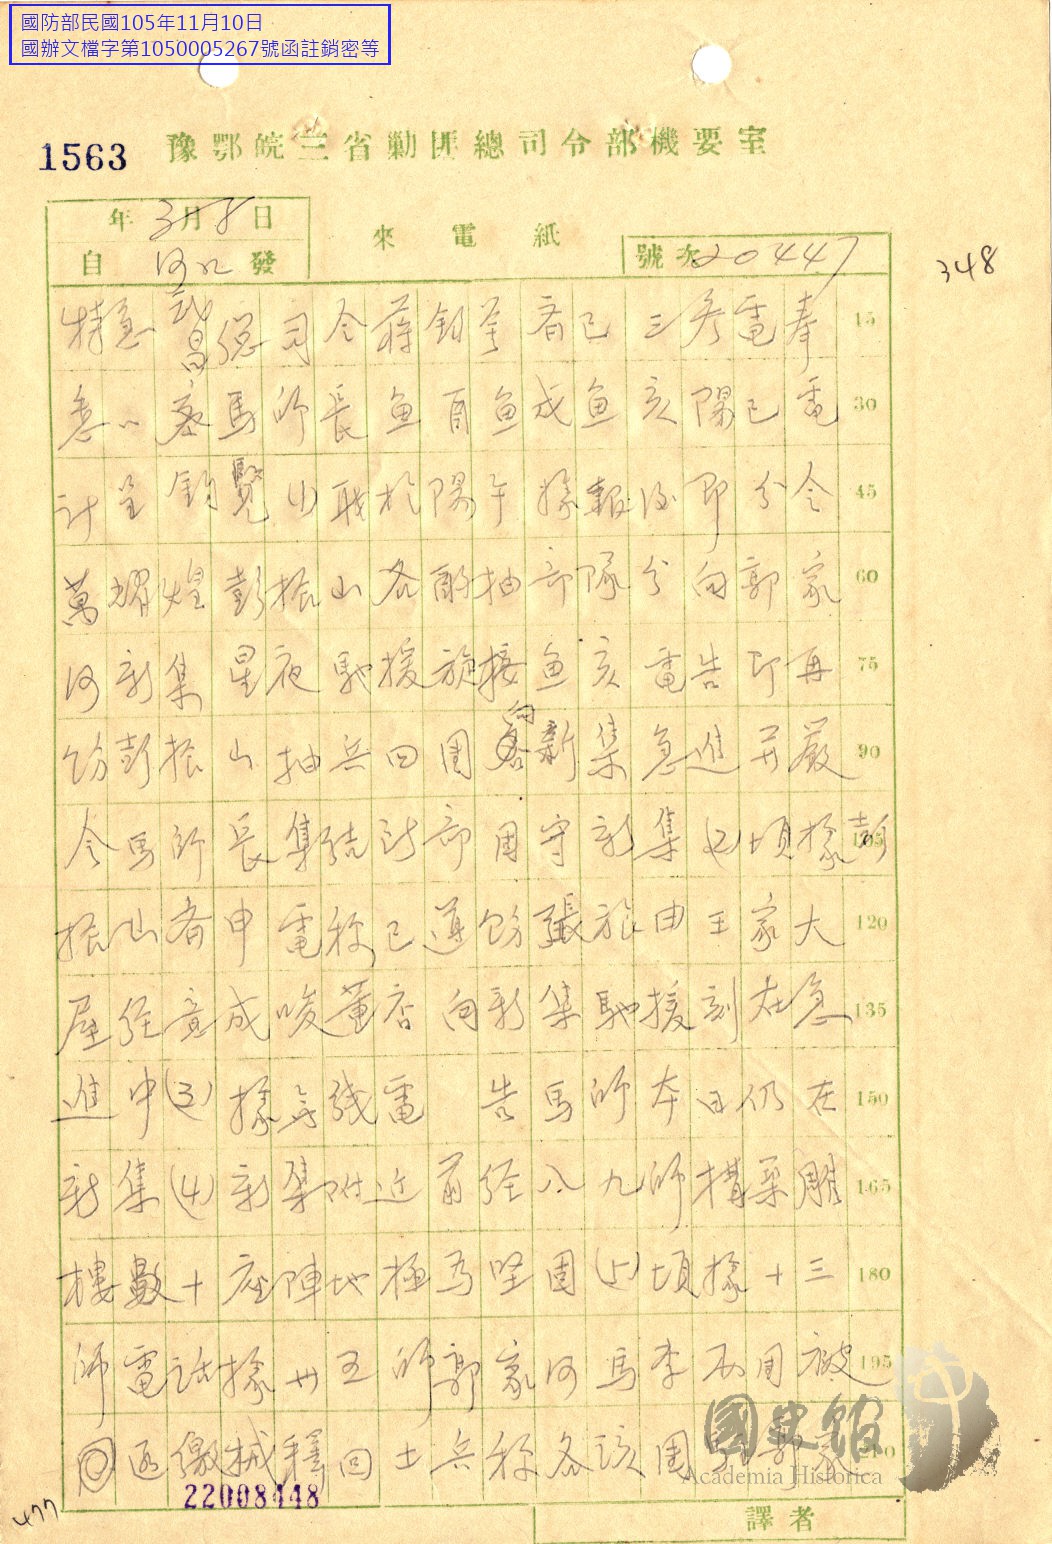 國防部民國105年11月10日
國辦文檔字第1050005267號函註銷密等
1563
豫鄂皖三省勦匪總司令部機要室
年3月8日
自 發
來電紙
號次20447
348
特急武昌總司令蔣鈞 齊已三 電奉 15
悉 馬師長魚酉魚戌魚亥陽已電 30
計呈鈞覽(1)職於陽午據報後即分令 45
萬耀煌彭振山各酌抽部隊分向郭家 60
河新集星夜馳援旋接魚亥電告即再 75
飭彭振山抽兵四團向新集急進并嚴 90
令馬師長集結所部固守新集(2)頃據彭 105
振山齊申電稱已遵飭張旅由王家大 120
屋經 成 董 向新集馳援刻在急 135
進中(3)據無線電 告馬師本日仍在 150
新集(4)新集附近前經八九師構築雕 165
樓數十座陣地極為堅固(5)頃據十三 180
師電話據卅五師郭家河馬李兩團被 195
匪繳械釋回士兵稱各該團 郭家 210
22008448
477
譯者
國史館
Academia Historica